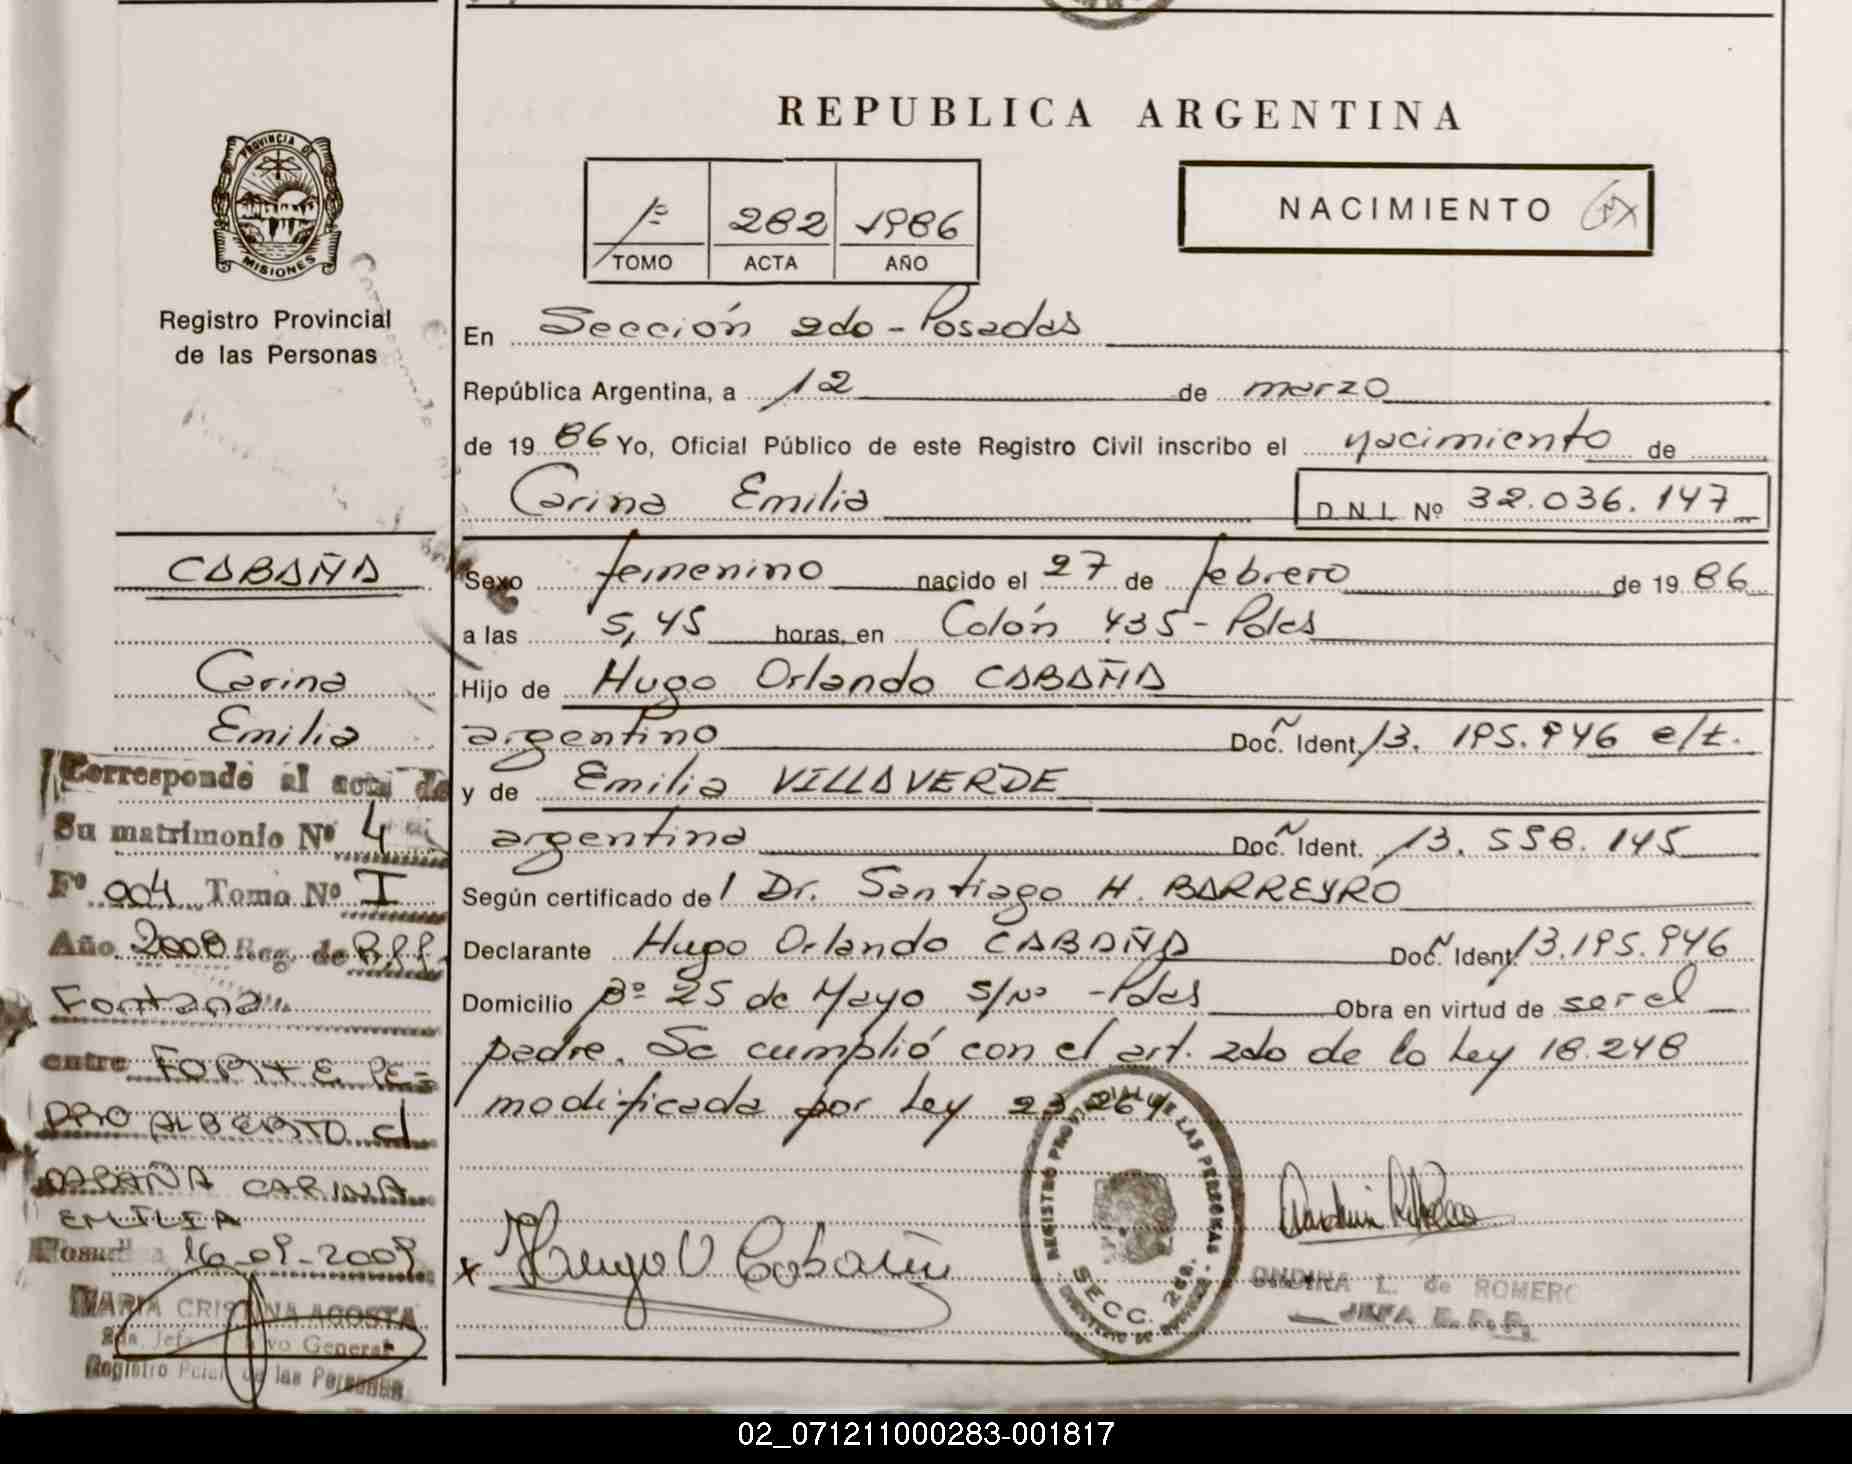 REPUBLICA ARGENTINA
PROVINCIA DE
MISIONES
Registro Provincial
de las Personas
1º 282 1986
TOMO ACTA AÑO
NACIMIENTO
En Sección 2do - Posadas
República Argentina, a 12 de marzo
de 1986 Yo, Oficial Público de este Registro Civil inscribo el nacimiento de
Carina Emilia D.N.I. Nº 32.036.147
Sexo femenino nacido el 27 de febrero de 1986
a las 5,45 horas, en Colón 435 - Pdas
Hijo de Hugo Orlando CABAÑA
argentino Doc. Ident. 13.195.946 e/t.
y de Emilia VILLAVERDE
argentina Doc. Ident. 13.558.145
Según certificado del Dr. Santiago H. BARREYRO
Declarante Hugo Orlando CABAÑA Doc. Ident. 13.195.946
Domicilio Bº 25 de Mayo S/Nº - Pdas Obra en virtud de ser el
padre. Se cumplió con el art. 2do de la Ley 18.248
modificada por Ley 23.264
CABAÑA
Carina
Emilia
Corresponde al acta de
Su matrimonio Nº 4
Fº 004 Tomo Nº I
Año 2008 Reg. de
Fontana
entre FORTE PE=
DRO ALBERTO c/
CABAÑA CARINA
EMILIA
16-09-2009
MARIA CRISTINA ACOSTA
General
Registro Pcial de las Personas
x Hugo O Cabaña
REGISTRO PROVINCIAL DE LAS PERSONAS
SECC. 2da.
ONDINA L. de ROMERO
JEFA
02_071211000283-001817